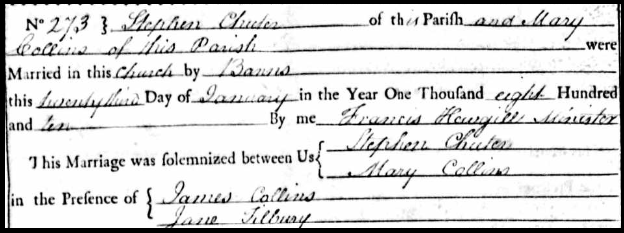 No 273 } Stephen Chuter of this Parish and Mary
Collins of this Parish were
Married in this Church by Banns
this twenty third Day of January in the Year One Thousand eight Hundred
and ten By me Francis Howgill Minister
This Marriage was solemnized between Us { Stephen Chuter
Mary Collins
in the Presence of { James Collins
Jane Tilbury